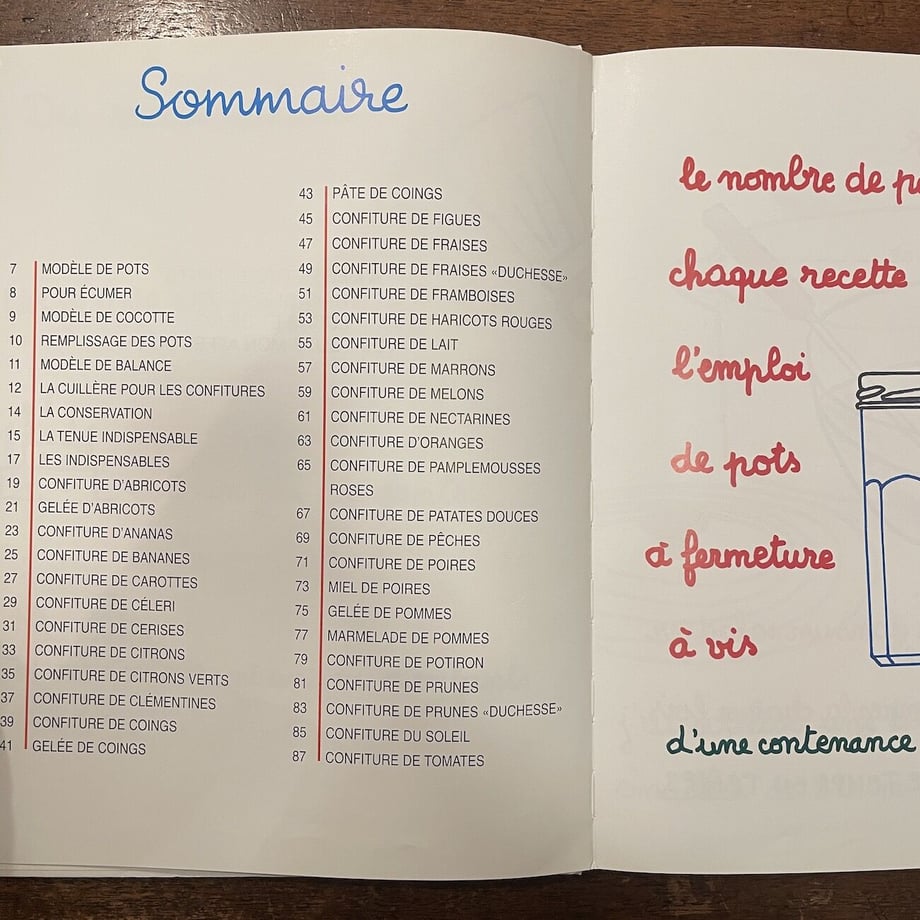 Sommaire
7 MODÈLE DE POTS
8 POUR ÉCUMER
9 MODÈLE DE COCOTTE
10 REMPLISSAGE DES POTS
11 MODÈLE DE BALANCE
12 LA CUILLÈRE POUR LES CONFITURES
14 LA CONSERVATION
15 LA TENUE INDISPENSABLE
17 LES INDISPENSABLES
19 CONFITURE D'ABRICOTS
21 GELÉE D'ABRICOTS
23 CONFITURE D'ANANAS
25 CONFITURE DE BANANES
27 CONFITURE DE CAROTTES
29 CONFITURE DE CÉLERI
31 CONFITURE DE CERISES
33 CONFITURE DE CITRONS
35 CONFITURE DE CITRONS VERTS
37 CONFITURE DE CLÉMENTINES
39 CONFITURE DE COINGS
41 GELÉE DE COINGS
43 PÂTE DE COINGS
45 CONFITURE DE FIGUES
47 CONFITURE DE FRAISES
49 CONFITURE DE FRAISES «DUCHESSE»
51 CONFITURE DE FRAMBOISES
53 CONFITURE DE HARICOTS ROUGES
55 CONFITURE DE LAIT
57 CONFITURE DE MARRONS
59 CONFITURE DE MELONS
61 CONFITURE DE NECTARINES
63 CONFITURE D'ORANGES
65 CONFITURE DE PAMPLEMOUSSES
ROSES
67 CONFITURE DE PATATES DOUCES
69 CONFITURE DE PÊCHES
71 CONFITURE DE POIRES
73 MIEL DE POIRES
75 GELÉE DE POMMES
77 MARMELADE DE POMMES
79 CONFITURE DE POTIRON
81 CONFITURE DE PRUNES
83 CONFITURE DE PRUNES «DUCHESSE»
85 CONFITURE DU SOLEIL
87 CONFITURE DE TOMATES
le nombre de
chaque recette
l'emploi
de pots
à fermeture
à vis
d'une contenance